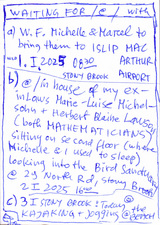 WAITING FOR /@/ with
a) W.F. Michelle & Marcel to
bring them to ISLIP MAC
ARTHUR
1. I. 2025 0830
STONY BROOK AIRPORT
b) @/in house of my ex-
in-Laws Marie-Louise Michel-
sohn & Herbert Blaine Lawson
(both MATHEMATICIANS)
Sitting on second floor (where
Michelle & I used to sleep)
looking into the Bird Sanctuary
@ 29 North Rd, Stony Brook
2 I 2025 16
c) 3 I STONY BROOK: Today @ the
KAJAKING + Jogging @